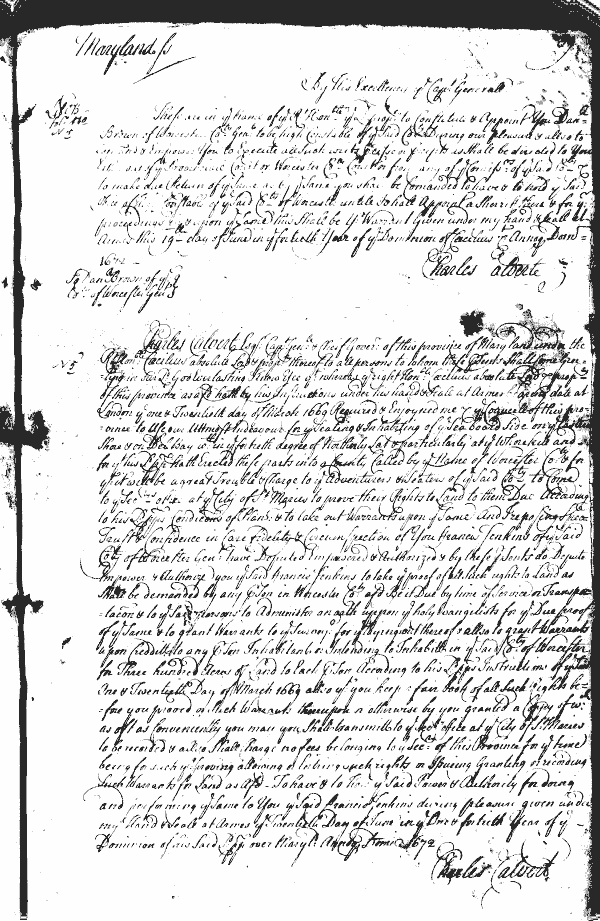 Maryland ss
By His Excellency ye Capt Generall
These are in ye name of ye Rt Honble ye Propry to Constitute & Appoint You Dan
Brown of Worcester Coty Gent to be high Constable of ye Said Coty During our pleasure & alsoe to
Impower You to Execute all Such writts as shall be directed to You
out of ye Provinciall Court or Worcester Coty Court or from any of ye Comissrs of ye Said Coty
to make due Return of ye same as by ye Same you shall be Comanded to have & to hold ye Said
Office of high Constable of ye Said Coty of Worcester untill I shall Appoint a Sherriff there & for ye
proceedings upon this Shall be Yr Warrant Given under my hand & seale at
Armes this 19th day of June in ye fortieth Year of ye Dominion of Cæcilius &c Annoq Dom
1672
Charles Calverte
To Dan Brown of ye
Coty of Worcester Gent
Charles Calvert Esqr Capt Genll & Cheif Govern of this province of Maryland under the
Rt Honble Cæcilius absolute Lord & propry thereof to all persons to whom these Prsents Shall Come Gree-
=ting in our Lord God Everlasting Know Yee yt whereas ye right Honble Cæcilius absolute Lord & propry
of this province aforesd hath by his Instructions under his hand & seale at Armes bearing date at
London ye one & Twentieth day of March 1669 Required & Injoyned me ye Councell of this pro-
=vince to Use our Utmost Endeavour for ye Seating & Inhabiting of ye Sea board Side on ye Eastern
Shoar on Dellaway in ye fortieth degree of Northerly Lat & particularly at ye Whorekill and
for ye his Lspp hath Erected these parts into a County Called by ye Name of Worcester Coty & for
yt it will be a great Trouble & Charge to ye Adventurers & Seaters of ye Said Coty to Come
to ye Secrys office at ye City of St Maries to prove their Rights to Land to them Due According
to his Lspps Conditions of Plant. & to take out Warrants upon ye Same And I reposing Speciall
Trust & Confidence in Care fidelity & Circumspection of You Francis Jenkins of ye Said
Coty of Worcester Gent have Deputed Impowred & Authorized & by these Prsents do Depute
Impower & Authorize you ye Said Francis Jenkins to take ye proof of all Such rights to Land as
Shall be demanded by any Person in Worcester Coty afd Due by time of Service or Transpor
=tacon & to ye Said persons to Administer an oath upon ye holy Evangelists for ye Due proof
of ye Same & to grant Warrants to ye Surveyr for ye laying out thereof & allso to grant Warrants
upon Creditt to any Person Inhabitant or Intending to Inhabitt in ye Said Coty of Worcester
for Three hundred Acres of Land to Each Person According to his Lspps Instructions of ye said
One & Twentieth Day of March 1669 also yt you keep a fair book of all Such Rights be-
=fore you prooved & Such Warrants thereupon or otherwise by you granted a Copy of wch
as oft as Conveniently you may you Shall transmitt to ye Secrys office at ye City of St Maries
to be recorded & allso Shall Charge no fees belonging to ye Secry of this Province for ye time
being for such ye proving allowing & listing such rights or Issuing Granting or recording
Such Warrants for Land as Afd To have & to hold ye Said Power & Authority for doing
and performing ye Same to You ye Said Francis Jenkins during pleasure given under
my Hand & Seale at Armes ye Twentieth Day of June in ye One & fortieth Year of ye
Dominion of his Said Lspp over Maryld Annoq Domini 1672
Charles Calvert